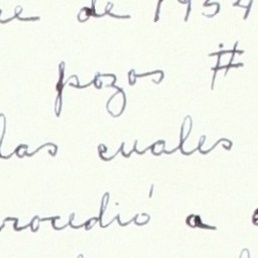 de 1954
pozos #
las cuales
procedió a